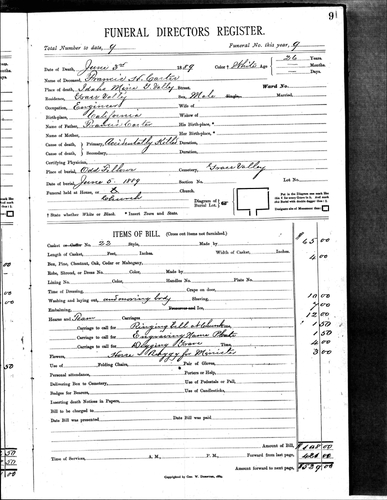 9
FUNERAL DIRECTORS REGISTER.
Total Number to date, 9 Funeral No. this year, 9
Date of Death, June 3rd 1889 Color † White 26 Years.
Name of Deceased, Francis H. Carter Months.
Place of death, Idaho Mine G. Valley Street. Days.
Residence, Grass Valley Male Single. Married.
Occupation, Engineer Wife of
Birthplace, California Widow of
Name of Father, Francis Carter His Birthplace,
Name of Mother, Her Birthplace,
Cause of death, Primary, Accidentally Killed Duration,
Cause of death, Secondary, Duration,
Certifying Physician,
Place of burial, Odd Fellows Cemetery, Grass Valley
Date of burial, June 5 1889 Section No. Lot No.
Funeral held at House, or Church
Diagram of Burial Lot.
† State whether White or Black. * Insert Town and State.
ITEMS OF BILL. (Cross out items not furnished.)
Casket 23 Style, Made by $ 65 00
Length of Casket, Feet, Inches. Width of Casket, Inches. 4 00
Box, Pine, Chestnut, Oak, Cedar or Mahogany,
Robe, Shroud, or Dress No. Color, Made by
Lining No. Color, Handles No. Plate No.
Time of Dressing, Crape on door,
Washing and laying out, and moving body Shaving, 10 00
Embalming, 7 00
Hearse and Team Carriages 12 00
Carriage to call for Ringing bell at Church Time, 1 50
Carriage to call for Engraving Name Plate Time, 1 50
Carriage to call for Digging Grave Time, 4 00
Flowers, Horse & Buggy for Minister 3 00
Use of Folding Chairs, Pair of Gloves,
Personal attendance, Porters or Help,
Delivering Box to Cemetery, Use of Pedestals or Pall,
Badges for Bearers, Use of Candlesticks,
Inserting death Notices in Papers,
Bill to be charged to
Date Bill was presented Date Bill was paid
Amount of Bill, $108 00
Time of Services, A. M., P. M. Forward from last page,
Amount forward to next page,